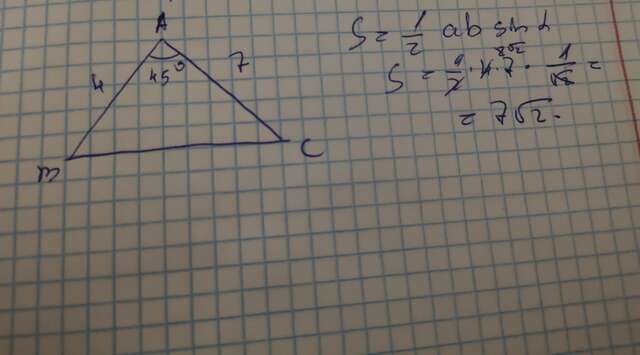 A
4
45°
7
B
C
S = 1/2 ab sin α
S = 1/2 · 4 · 7 · 1/√2 =
= 7√2.